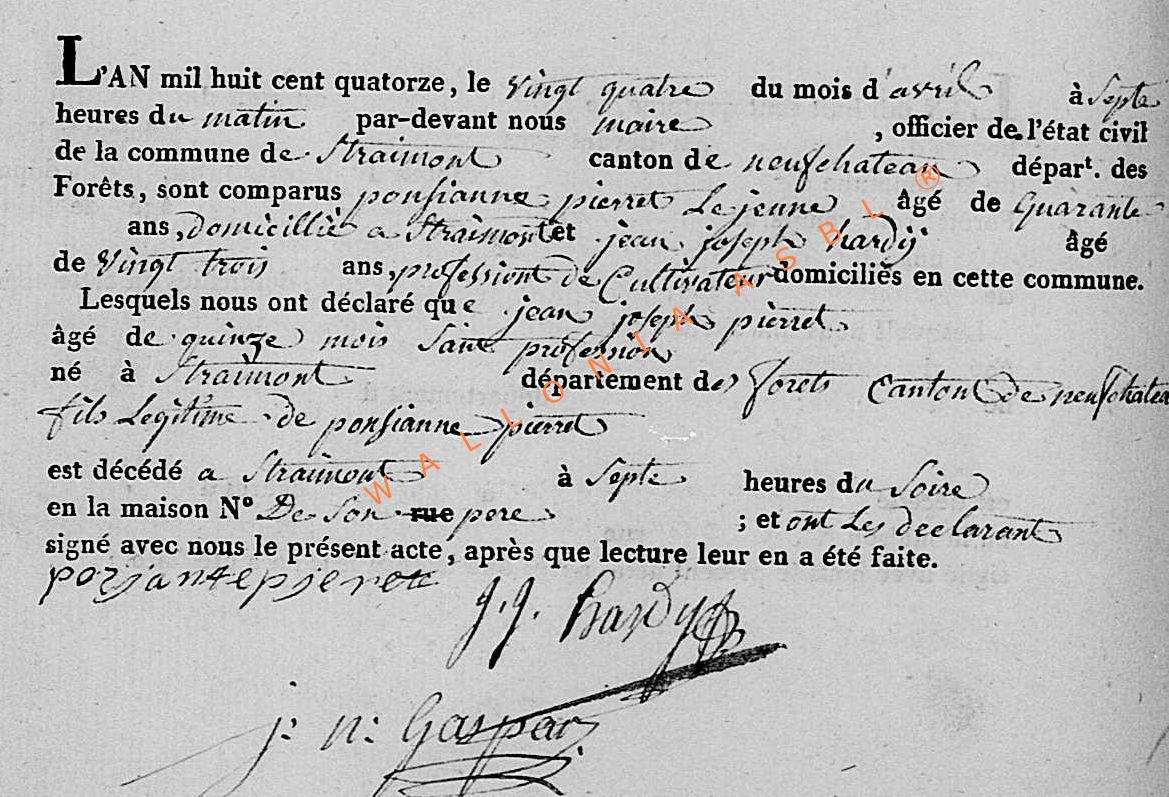 L'AN mil huit cent quatorze, le vingt quatre du mois d'avril à septe
heures du matin par-devant nous maire , officier de l'état civil
de la commune de Straimont canton de neufchateau départ. des
Forêts, sont comparus ponsianne pierret Le jeune âgé de quarante
ans, domicillié a Straimont et jean joseph hardÿ âgé
de vingt trois ans, professiont de Cultivateur domiciliés en cette commune.
Lesquels nous ont déclaré que jean joseph pierret
âgé de quinze mois sans profession
né à Straimont département des forets Canton de neufchateau
fils Legitime de ponsianne pierret
est décédé a Straimont à septe heures du soire
en la maison N° De son rue pere ; et ont Les declarant
signé avec nous le présent acte, après que lecture leur en a été faite.
J. J. hardy
j: n: Gaspar
WALLONIA ASBL ®